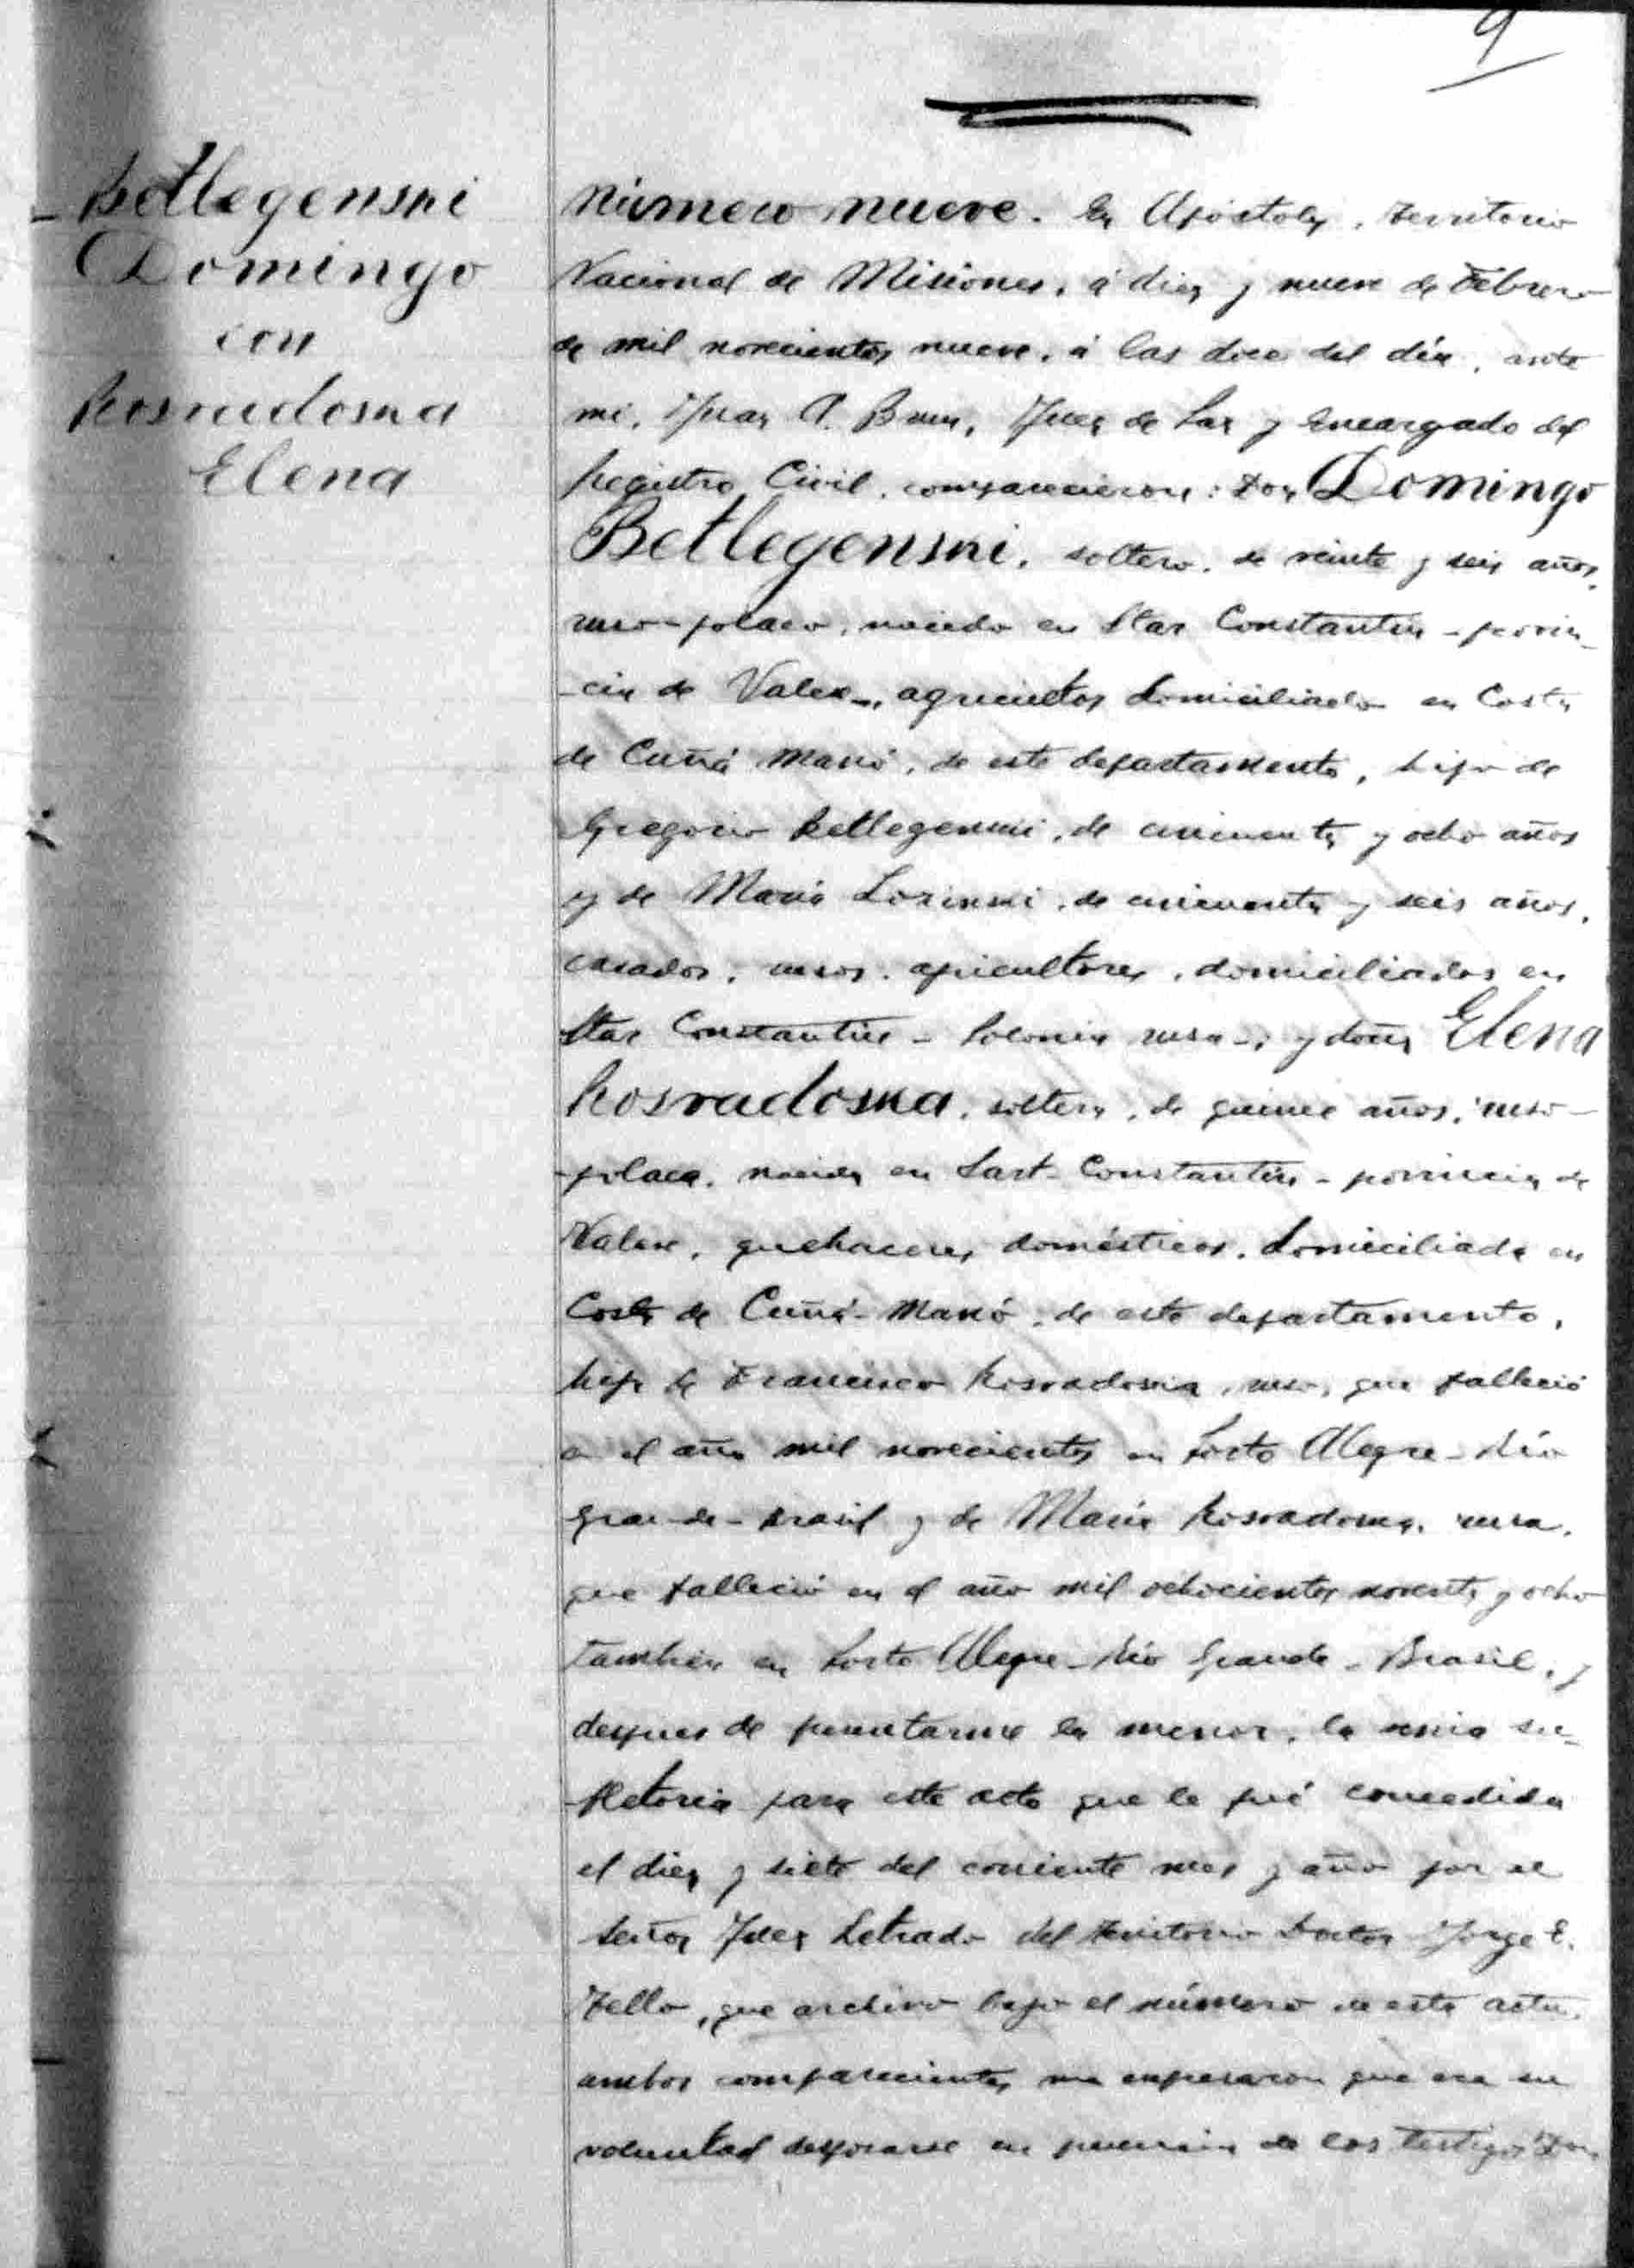 9
Betlegenski
Domingo
con
Rosvadoska
Elena
Número nueve. En Apóstoles, Territorio
Nacional de Misiones, á diez y nueve de Febrero
de mil novecientos nueve, á las doce del día, ante
mi, Juan A. Juez de Paz y Encargado del
Registro Civil, comparecieron: Don Domingo
Betlegenski, soltero, de veinte y seis años,
ruso-polaco, nacido en Star Constantin - provin
-cia de Valex -, agricultor, domiciliado en Costa
de Cuñá Manó, de este departamento, hijo de
Gregorio Betlegenski, de cincuenta y ocho años
y de María Losinski, de cincuenta y seis años,
casados, rusos, agricultores, domiciliados en
Star Constantin - Polonia rusa -; y doña Elena
Rosvadoska, soltera, de quince años, ruso-
-polaca, nacida en Sart-Constantin - provincia de
Valex, quehaceres domésticos, domiciliada en
Costa de Cuñá-Manó, de este departamento,
hija de Francisco Rosvadoska, ruso, que falleció
en el año mil novecientos en Porto Alegre - Río
Grande - Brasil y de María Rosvadoska, rusa,
que falleció en el año mil ochocientos noventa y ocho
tambien en Porto Alegre - Río Grande - Brasil, y
despues de presentarme la menor, la venia su-
pletoria para este acto que le fué concedida
el diez y siete del corriente mes y año por el
Señor Juez Letrado del Territorio Doctor Jorge E.
Tello, que archivo bajo el número de esta acta,
ambos comparecientes me expresaron que era su
voluntad desposarse en presencia de los testigos Don